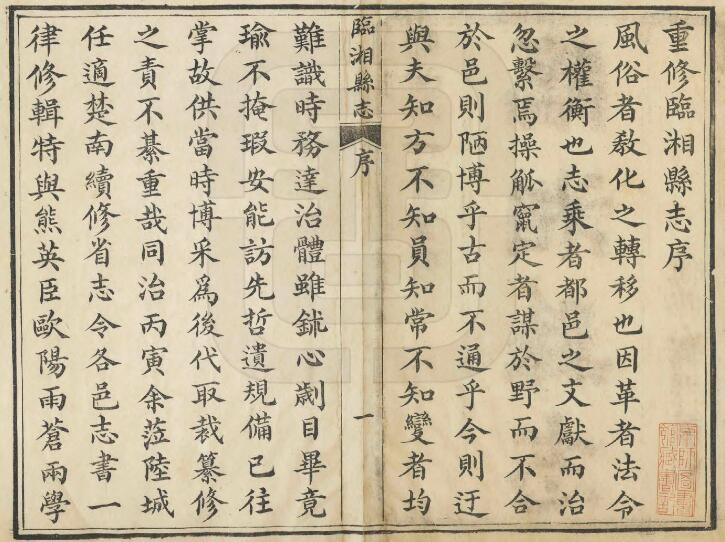 重修臨湘縣志序
風俗者教化之轉移也因革者法令
之權衡也志乘者都邑之文獻而治
忽繫焉操觚竄定者謀於野而不合
於邑則陋博乎古而不通乎今則迂
與夫知方不知員知常不知變者均
臨湘縣志 序 一
難識時務達治體雖鉥心劌目畢竟
瑜不掩瑕安能訪先哲遺規備已往
掌故供當時博采為後代取裁纂修
之責不綦重哉同治丙寅余蒞陸城
任適楚南續修省志令各邑志書一
律修輯特與熊英臣歐陽雨蒼兩學